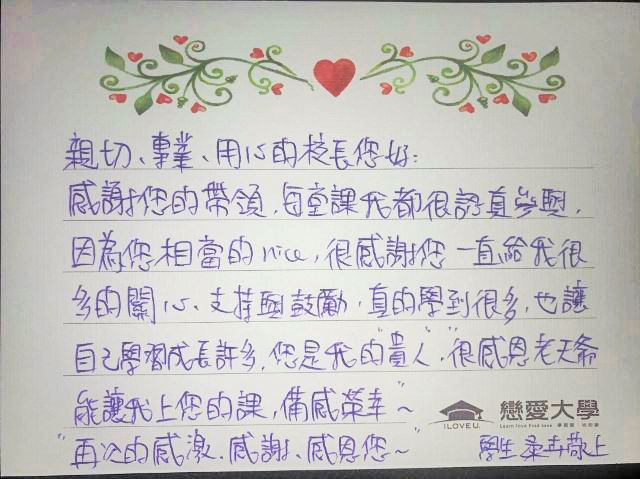 親切、專業、用心的校長您好:
感謝您的帶領,每堂課我都很認真參與,
因為您相當的nice,很感謝您一直給我很
多的關心、支持與鼓勵,真的學到很多,也讓
自己學習成長許多,您是我的"貴人",很感恩老天爺
能讓我上您的課,備感榮幸~
"再次的感激、感謝、感恩您~"
ILOVEU.
戀愛大學
Learn love Find love
學生 敬上